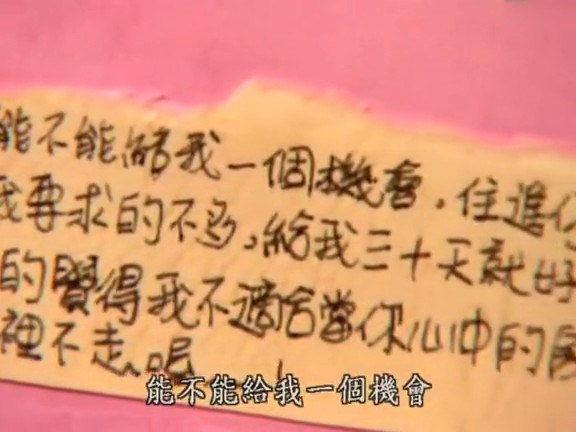 能不能給我一個機會，住進
我要求的不多，給我三十天就好
的覺得我不適合當你心中的房
裡不走呢
能不能給我一個機會